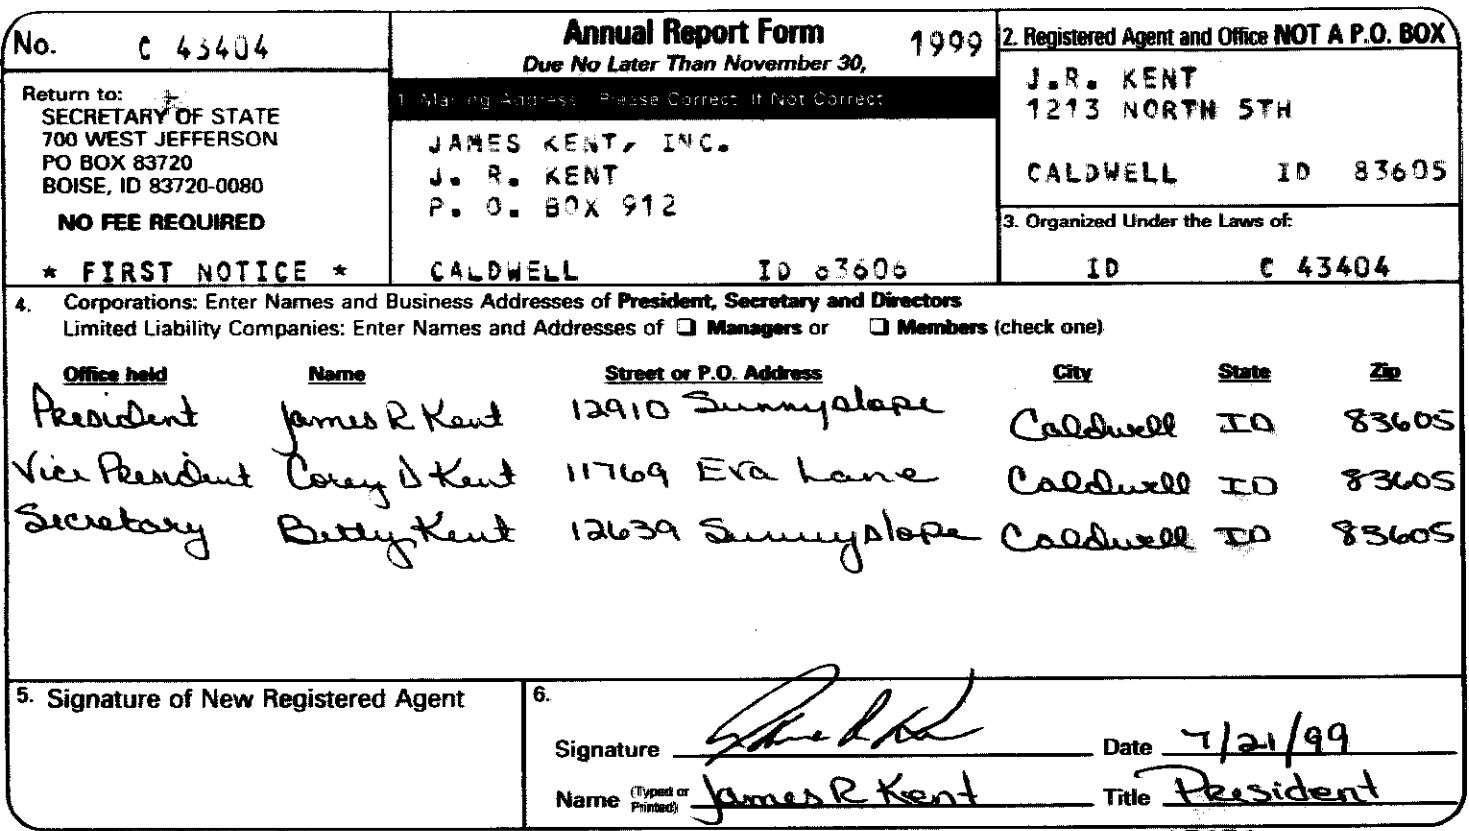 No. C 43404
Annual Report Form 1999
Due No Later Than November 30,
Return to:
SECRETARY OF STATE
700 WEST JEFFERSON
PO BOX 83720
BOISE, ID 83720-0080
NO FEE REQUIRED
* FIRST NOTICE *
1. Mailing Address: Please Correct If Not Correct
JAMES KENT, INC.
J. R. KENT
P. O. BOX 912
CALDWELL ID 83606
2. Registered Agent and Office NOT A P.O. BOX
J.R. KENT
1213 NORTH 5TH
CALDWELL ID 83605
3. Organized Under the Laws of:
ID C 43404
4. Corporations: Enter Names and Business Addresses of President, Secretary and Directors
Limited Liability Companies: Enter Names and Addresses of ❑ Managers or ❑ Members (check one)
Office held Name Street or P.O. Address City State Zip
President James R Kent 12910 Sunnyslope Caldwell ID 83605
Vice President Corey D Kent 11769 Eva Lane Caldwell ID 83605
Secretary Betty Kent 12639 Sunnyslope Caldwell ID 83605
5. Signature of New Registered Agent
6.
Signature James R Kent Date 7/21/99
Name (Typed or Printed) James R Kent Title President